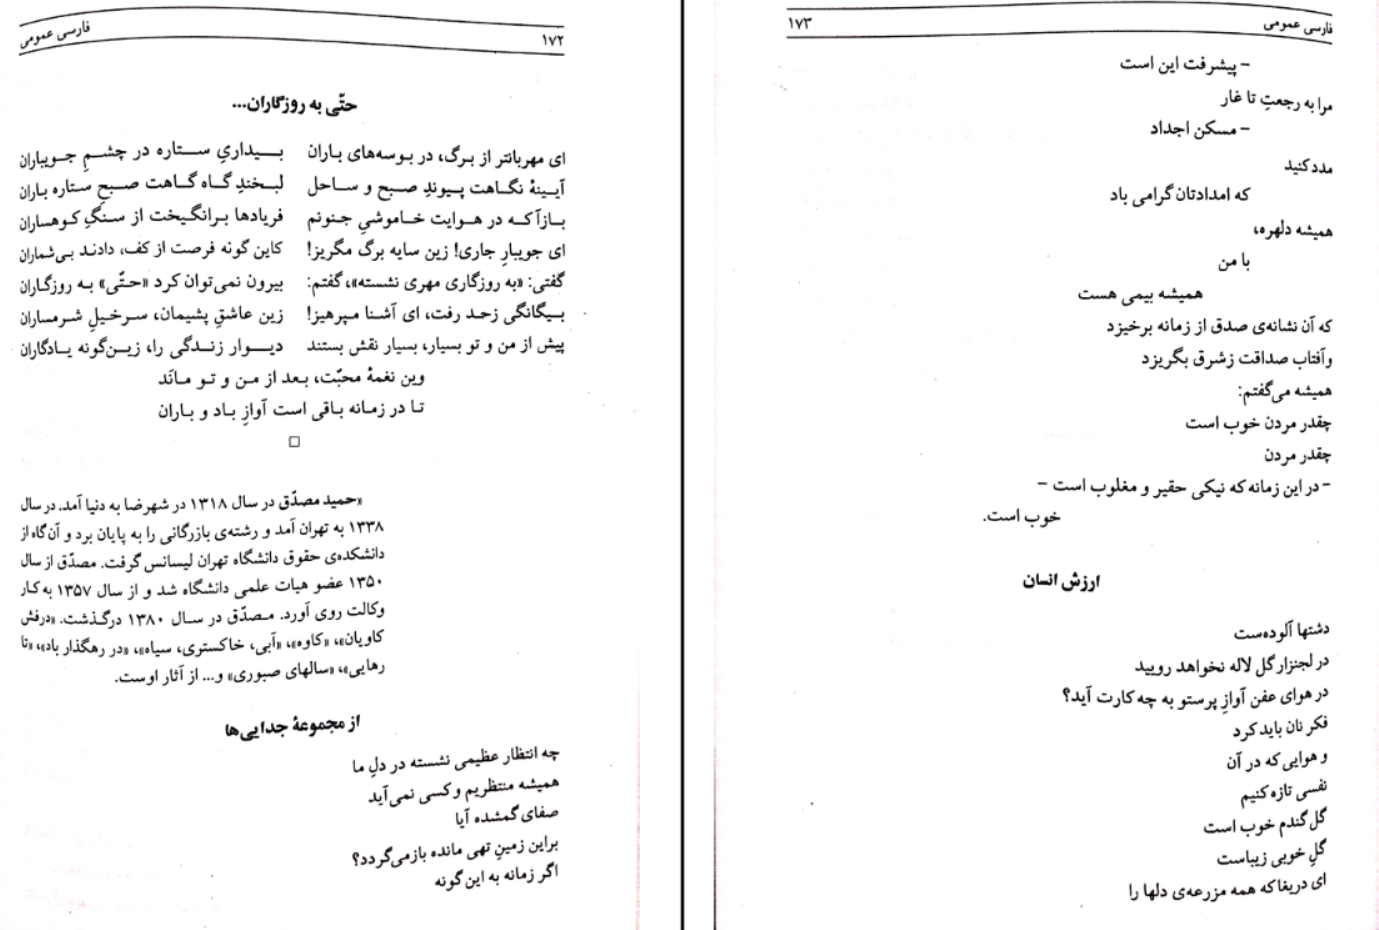 ۱۷۲
فارسی عمومی
حتّی به روزگاران...
ای مهربانتر از برگ، در بوسه‌های باران بیداریِ ستاره در چشمِ جویباران
آیینهٔ نگاهت پیوندِ صبح و ساحل لبخندِ گاه گاهت صبحِ ستاره باران
بازآ که در هوایت خاموشیِ جنونم فریادها برانگیخت از سنگِ کوهساران
ای جویبارِ جاری! زین سایه برگ مگریز! کاین گونه فرصت از کف، دادند بی‌شماران
گفتی: «به روزگاری مهری نشسته»، گفتم: بیرون نمی‌توان کرد «حتّی» به روزگاران
بیگانگی زحد رفت، ای آشنا مپرهیز! زین عاشقِ پشیمان، سرخیلِ شرمساران
پیش از من و تو بسیار، بسیار نقش بستند دیوار زندگی را، زین‌گونه یادگاران
وین نغمهٔ محبّت، بعد از من و تو مانَد
تا در زمانه باقی است آوازِ باد و باران
□
«حمید مصدّق در سال ۱۳۱۸ در شهرضا به دنیا آمد. در سال
۱۳۳۸ به تهران آمد و رشته‌ی بازرگانی را به پایان برد و آن‌گاه از
دانشکده‌ی حقوق دانشگاه تهران لیسانس گرفت. مصدّق از سال
۱۳۵۰ عضو هیات علمی دانشگاه شد و از سال ۱۳۵۷ به کار
وکالت روی آورد. مصدّق در سال ۱۳۸۰ درگذشت. «درفش
کاویان»، «کاوه»، «آبی، خاکستری، سیاه»، «در رهگذار باد»، «تا
رهایی»، «سالهای صبوری» و... از آثار اوست.
از مجموعهٔ جدایی‌ها
چه انتظار عظیمی نشسته در دلِ ما
همیشه منتظریم و کسی نمی‌آید
صفای گمشده آیا
براین زمینِ تهی مانده بازمی‌گردد؟
اگر زمانه به این‌گونه
فارسی عمومی
۱۷۳
– پیشرفت این است
مرا به رجعتِ تا غار
– مسکن اجداد
مدد کنید
که امدادتان گرامی باد
همیشه دلهره،
با من
همیشه بیمی هست
که آن نشانه‌ی صدق از زمانه برخیزد
وآفتاب صداقت زشرق بگریزد
همیشه می‌گفتم:
چقدر مردن خوب است
چقدر مردن
– در این زمانه که نیکی حقیر و مغلوب است –
خوب است.
ارزش انسان
دشتها آلوده‌ست
در لجنزار گل لاله نخواهد رویید
در هوای عفن آوازِ پرستو به چه کارت آید؟
فکر نان باید کرد
و هوایی که در آن
نفسی تازه کنیم
گل گندم خوب است
گلِ خوبی زیباست
ای دریغا که همه مزرعه‌ی دلها را